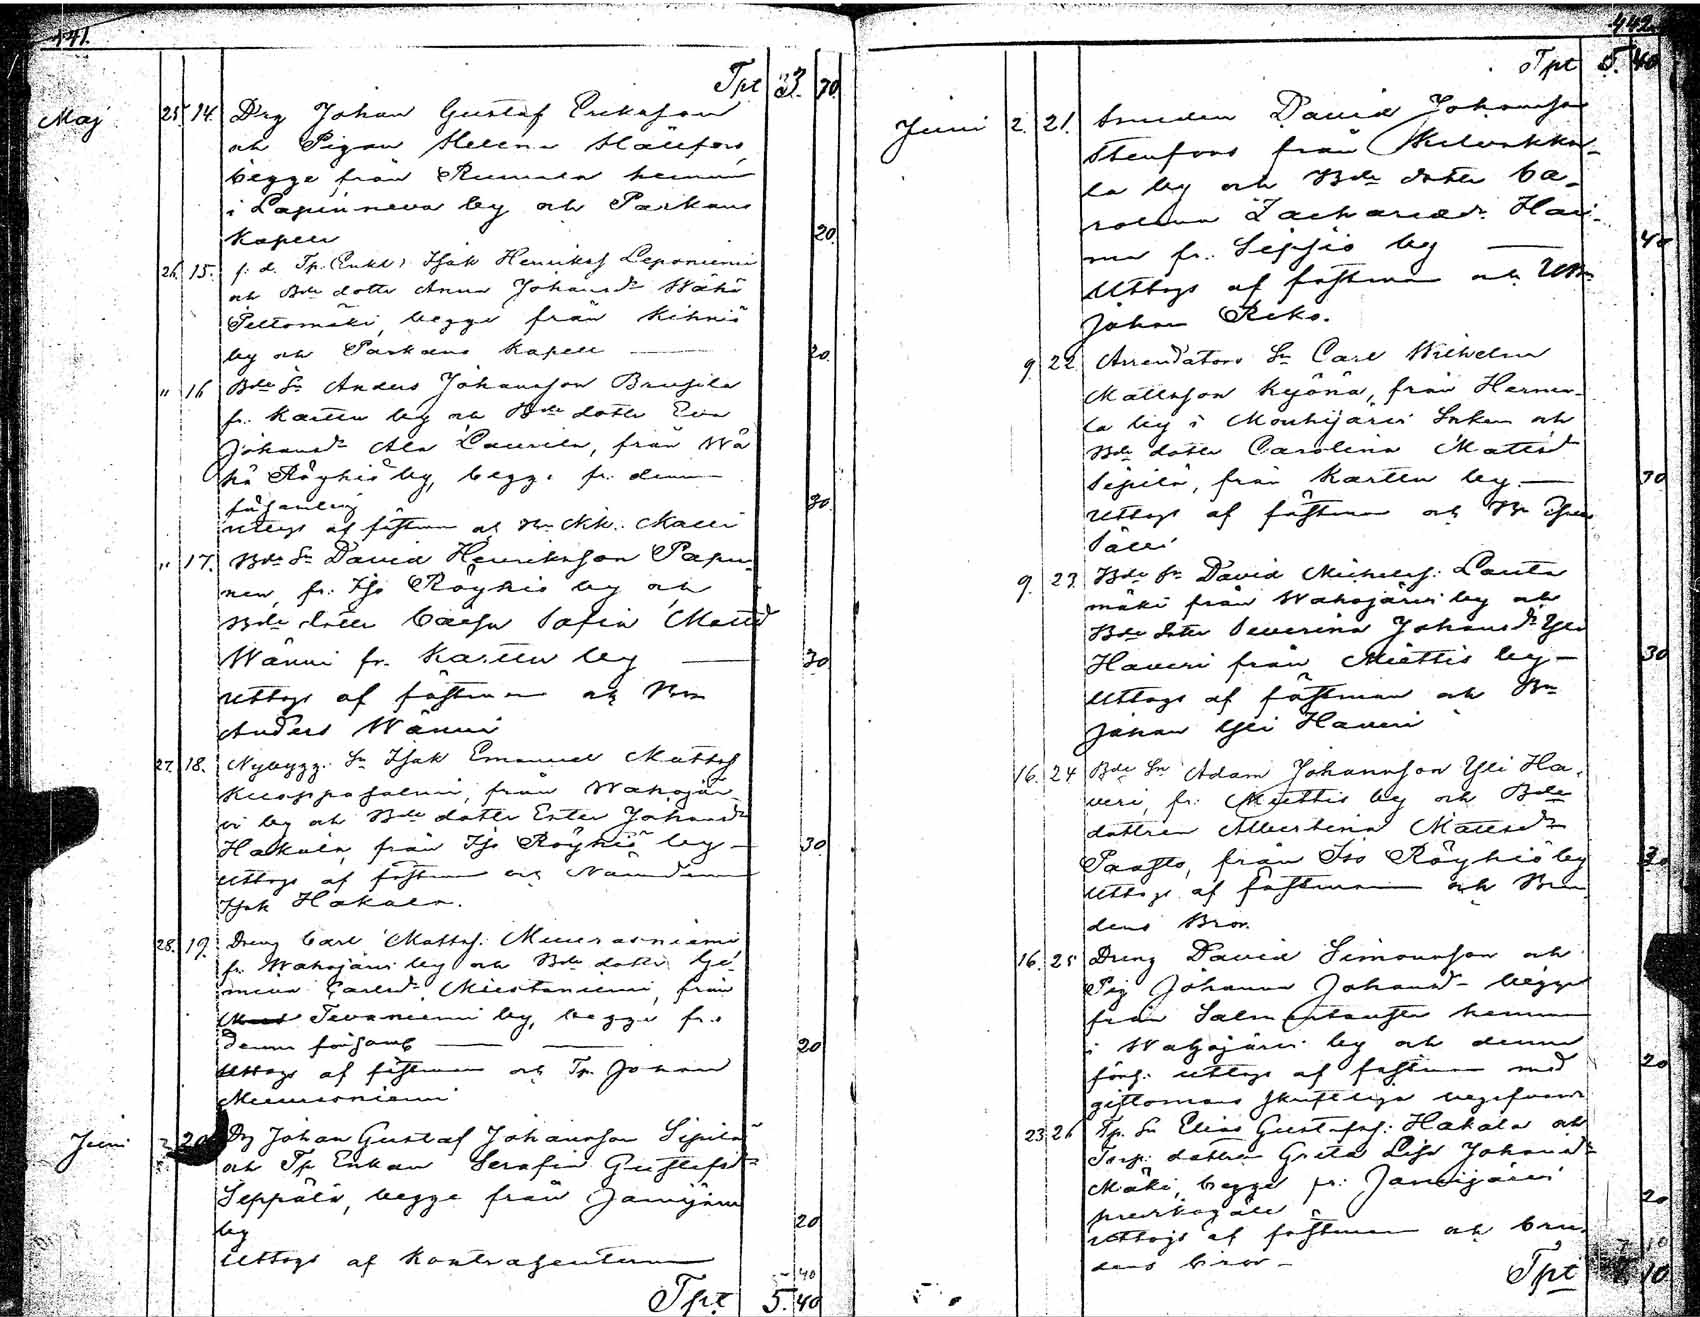 441.
Tpt 3. 70
Maj 25. 14. Drg Johan Gustaf Eriksson
och Pigan Helena Hällfors
begge från Rumala hemm.
i Lapinneva by och Parkano
Kapell 20.
26. 15. f. d. Tp. Enkl. Isak Henrikss Leponiemi
och Bde dotter Anna Johansdr Wähä
Peltomäki, begge från Kihniö
by och Parkano Kapell — 20.
" 16 Bde Sn Anders Johansson Brusila
fr. Karttu by och Bde dotter Eva
Johansdr Ala Laurila, från Wä
hä Röyhiö by, begge fr. denna
församling 30.
Uttogs af fästman och Matti
" 17. Bde Sn David Henriksson Papu-
nen, fr. Iso Röyhiö by och
Bde dotter Caisa Sofia Mattsd
Wänni fr. Karttu by — 30
Uttogs af fästman och Bon
Anders Wänni
27. 18. Nybygg. Sn Isak Emanuel Mattss
Kuoppasalmi, från Wahojär-
vi by och Bde dotter Ester Johansdr
Hakala, från Iso Röyhiö by — 30.
Uttogs af fästman och Nämndeman
Isak Hakala.
28. 19. Dreng Carl Mattss. Muurasniemi
fr. Wahojärvi by och Bde dotter
Carlsdr Mustaniemi, från
Tevaniemi by, begge fr.
denna församl — — 20
Uttogs af fästman och Tp. Johan
Muurasniemi
Juni 2. 20. Dg Johan Gustaf Johansson Sipilä
och Tp Enkan Serafia Gustafsdr
Seppälä, begge från Jämijärvi
by 20
Uttogs af Kontrahenterna
40
Tpt 5. 40
442.
Tpt 5. 40
Juni 2. 21. Smeden David Johansson
Stenfors från Kilvakka-
la by och Bde dotter Ca-
rolina Zachariædr Hari-
ma fr. Sipsiö by — 40
Uttogs af fästman och
Johan Reko.
9. 22. Arrendators Sn Carl Wilhelm
Mattsson Kejönä, från Herma-
la by i Mouhijärvi Soken och
Bde dotter Carolina Mattsd
Sipilä, från Karttu by — 30
Uttogs af fästman och Bn
Sälli
9. 23. Bde Sn David Michelss: Lauta
mäki från Wahojärvi by och
Bde dotter Severina Johansdr Yli
Haveri från Miettis by — 30
Uttogs af fästman och Bn
Johan Yli Haveri
16. 24 Bde Sn Adam Johansson Yli Ha-
veri, fr. Miettis by och Bde
dottren Albertina Mattsdr
Paasto, från Iso Röyhiö by 30
Uttogs af fästman och Bru-
dens Bror.
16. 25 Dreng David Simonsson och
Pig Johanna Johansdr begge
från Salmentausta hemman
i Wahojärvi by och denna
förs: Uttogs af fästman med 20
giftomans skriftliga begifvande
23. 26 Tp. Sn Elias Gustafss: Hakala och
Torp: dottren Greta Lisa Johansdr
Mäki, begge fr. Jämijärvi
predikogäll 20
Uttogs af fästman och bru-
dens bror —
Tpt 7. 10